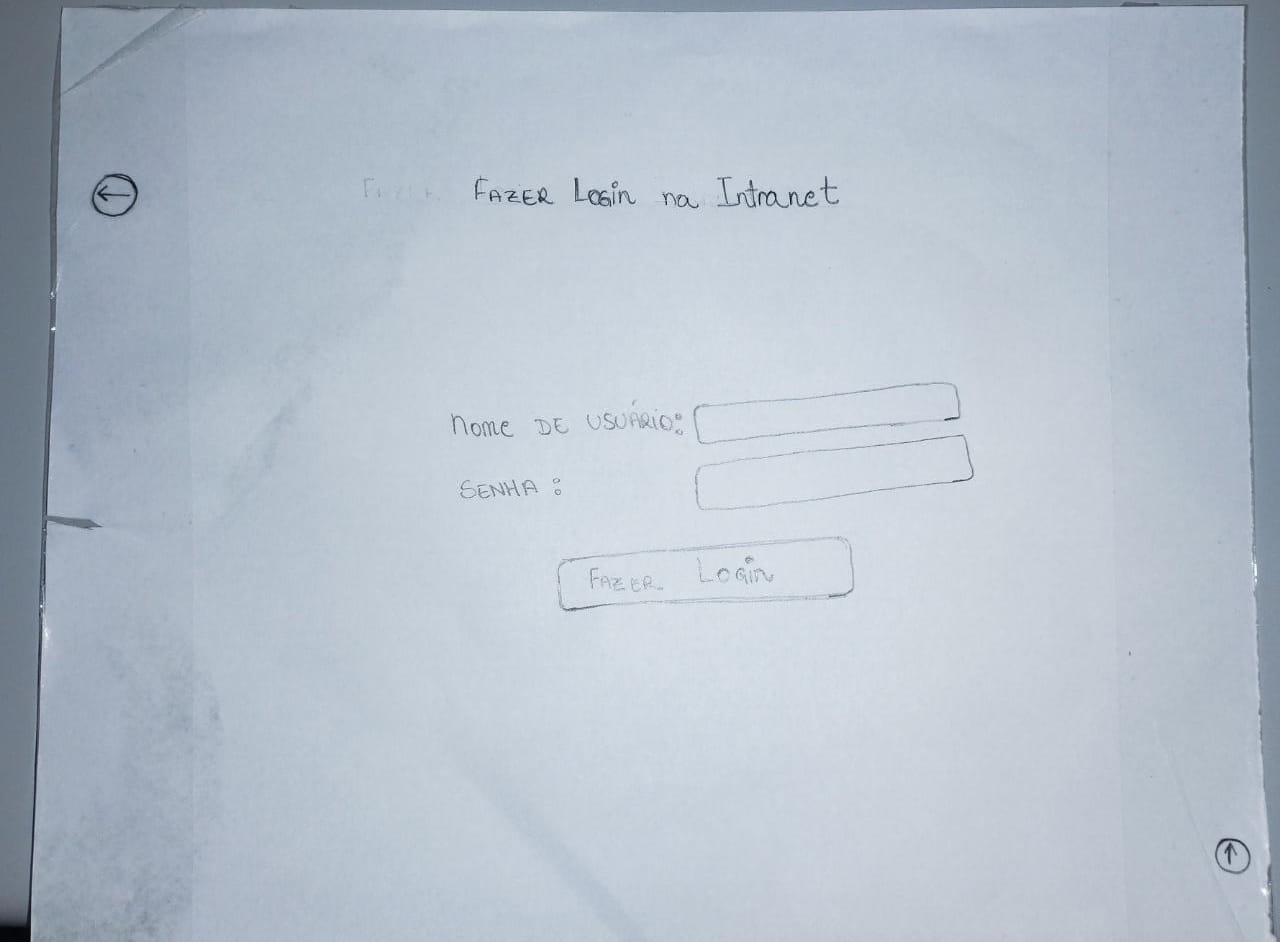 FAZER Login na Intranet
Nome DE USUÁRIO:
SENHA :
FAZER Login